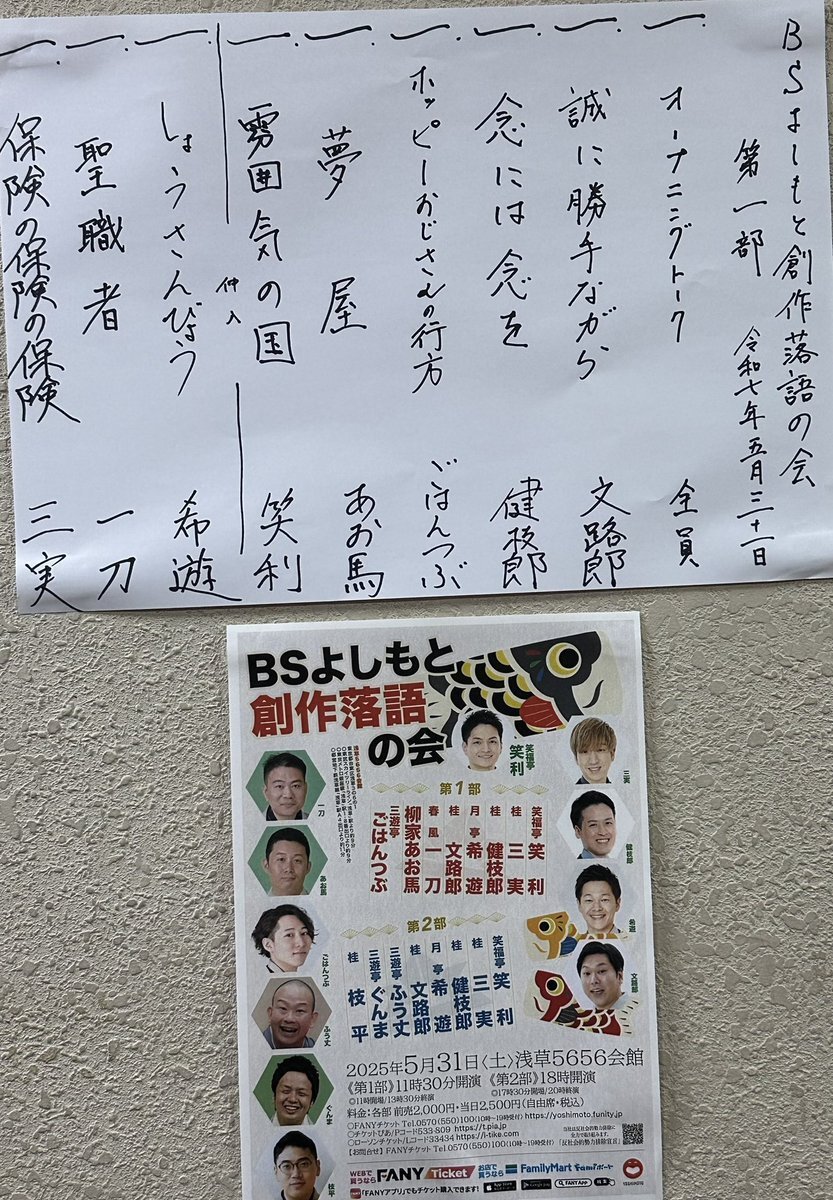 BSよしもと創作落語の会
第一部 令和七年五月三十一日
一、オープニングトーク 全員
一、誠に勝手ながら 文路郎
一、念には念を 健枝郎
一、ホッピーおじさんの行方 ごはんつぶ
一、夢屋 あお馬
一、雰囲気の国 笑利
仲入
一、しょうさんびょう 希遊
一、聖職者 一刀
一、保険の保険の保険 三実
BSよしもと
創作落語
の会
笑福亭
笑利
三実
健枝郎
希遊
文路郎
一刀
あお馬
ごはんつぶ
ふう丈
ぐんま
枝平
浅草5656会館
第1部
笑福亭 笑利
桂 三実
桂 健枝郎
月亭 希遊
桂 文路郎
春風 一刀
柳家あお馬
三遊亭 ごはんつぶ
第2部
笑福亭 笑利
桂 三実
桂 健枝郎
月亭 希遊
桂 文路郎
三遊亭 ふう丈
三遊亭 ぐんま
桂 枝平
2025年5月31日〈土〉浅草5656会館
《第1部》11時30分開演 《第2部》18時開演
◎11時開場/13時30分終演 ◎17時30分開場/20時終演
料金:各部 前売2,000円・当日2,500円(自由席・税込)
○FANYチケット Tel.0570(550)100(10時〜19時受付) https://yoshimoto.funity.jp
○チケットぴあ/Pコード533-809 https://t.pia.jp
○ローソンチケット/Lコード33434 https://l-tike.com
【お問合せ】FANYチケット Tel.0570(550)100(10時〜19時受付)
当社は反社会的勢力排除に
全力で取り組みます。
「反社会的勢力排除宣言」
WEBで
買うなら
FANY Ticket
お店で
買うなら
FamilyMart
Famiポート
「FANYアプリでもチケット購入できます!
App Store
Google Play
FANYアプリ
検索